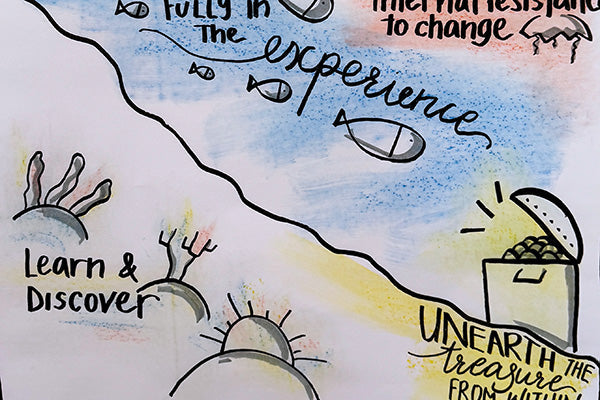 Fully in
The
experience
Internal resistance
to change
Learn &
Discover
UNEARTH THE
treasure
FROM WITHIN